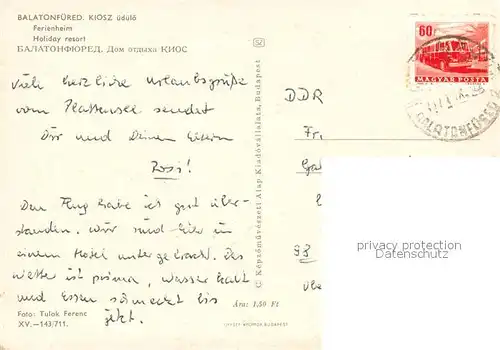 BALATONFÜRED. KIOSZ üdülő
Ferienheim
Holiday resort
БАЛАТОНФЮРЕД. Дом отдыха КИОС
60f
MAGYAR POSTA
BALATONFÜRED
Viele herzliche Urlaubsgrüße
vom Plattensee sendet
Dir und Deinen Eltern
Rosi!
Den Flug habe ich gut über-
standen. Wir sind hier in
einem Hotel untergebracht. Das
Wetter ist prima, Wasser kalt
und Essen schmeckt bis
jetzt.
Foto: Tulok Ferenc
XV.—143/711.
Ára: 1,50 Ft
© Képzőművészeti Alap Kiadóvállalata, Budapest
OFFSET NYOMDA BUDAPEST
DDR
Fr
privacy protection
Datenschutz